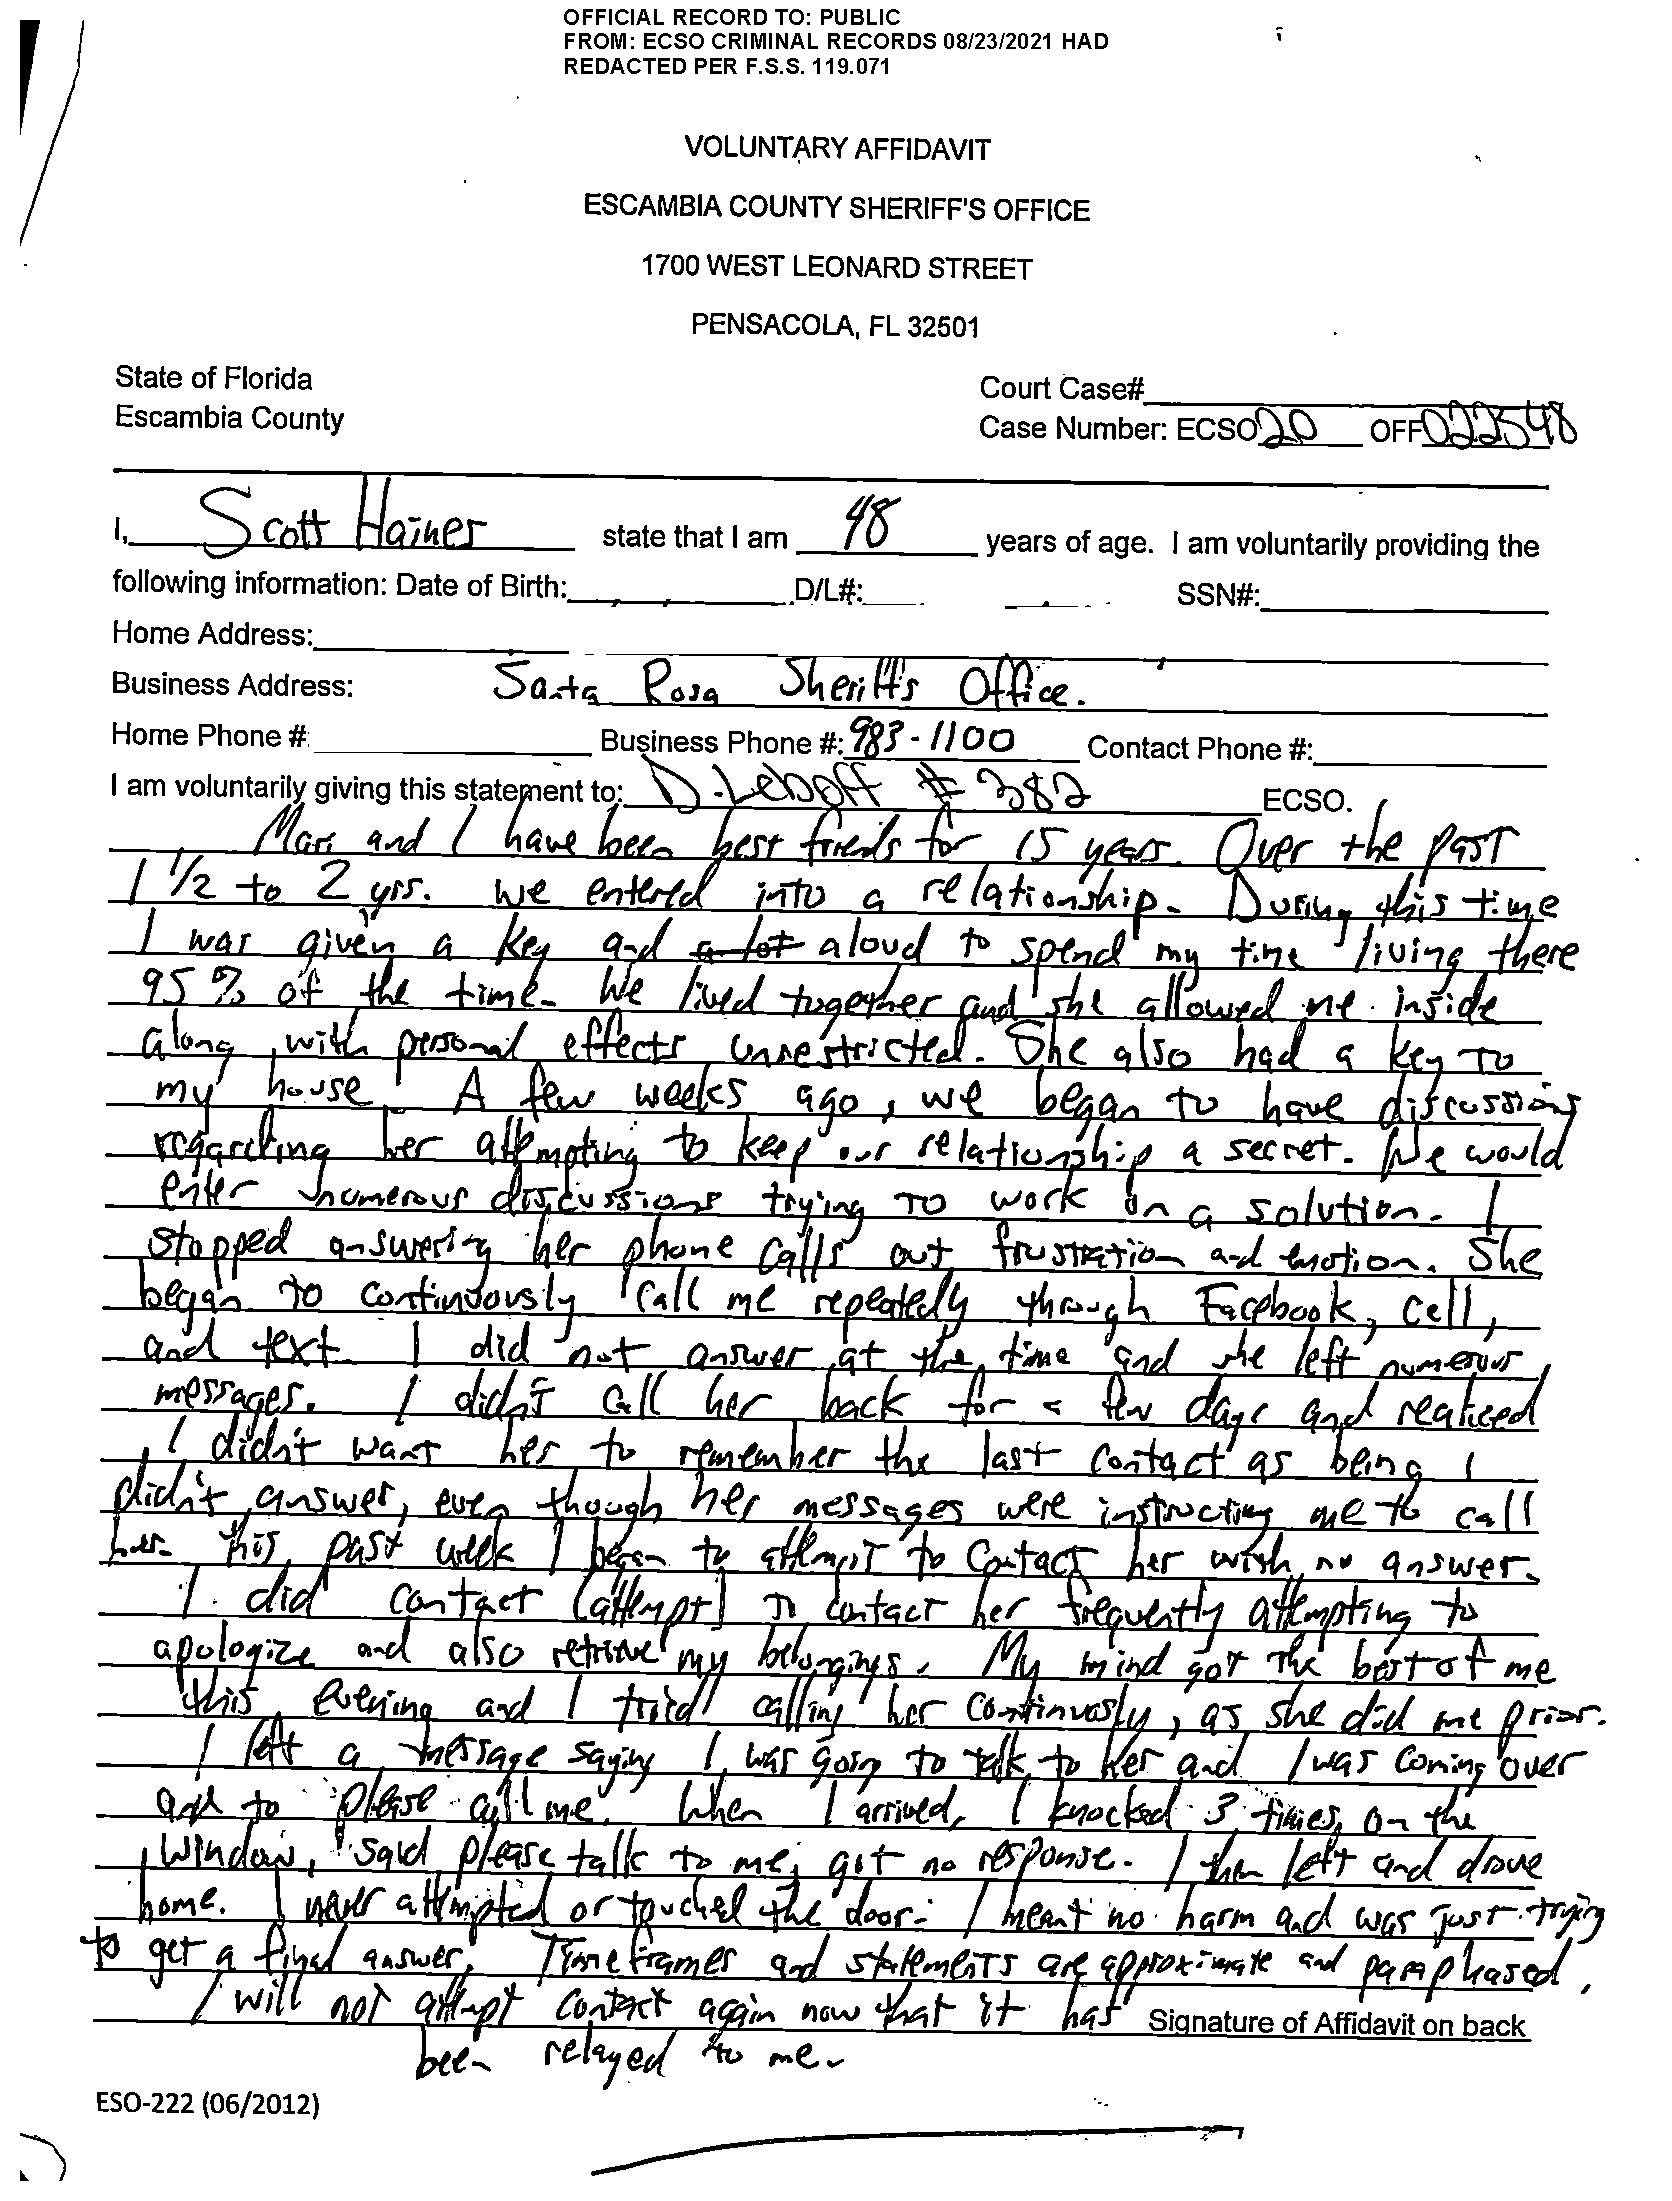 OFFICIAL RECORD TO: PUBLIC
FROM: ECSO CRIMINAL RECORDS 08/23/2021 HAD
REDACTED PER F.S.S. 119.071
VOLUNTARY AFFIDAVIT
ESCAMBIA COUNTY SHERIFF'S OFFICE
1700 WEST LEONARD STREET
PENSACOLA, FL 32501
State of Florida
Court Case#
Escambia County
Case Number: ECSO 20 OFF 022548
I, Scott Hainer state that I am 48 years of age. I am voluntarily providing the
following information: Date of Birth: D/L#: SSN#:
Home Address:
Business Address: Santa Rosa Sheriff's Office.
Home Phone #: Business Phone #: 983-1100 Contact Phone #:
I am voluntarily giving this statement to: D. Leboff #382 ECSO.
and I have been best friends for 15 years. Over the past
1 1/2 to 2 yrs. we entered into a relationship. During this time
I was given a key and a lot aloud to spend my time living there
95% of the time. We lived together and she allowed me inside
along with personal effects unrestricted. She also had a key to
my house. A few weeks ago, we began to have discussions
regarding her attempting to keep our relationship a secret. We would
enter numerous discussions trying to work on a solution. I
stopped answering her phone calls out frustration and emotion. She
began to continuously call me repeatedly through Facebook, cell,
and text. I did not answer at the time and she left numerous
messages. I didn't call her back for a few days and realized
I didn't want her to remember the last contact as being I
didn't answer, even though her messages were instructing me to call
her. This past week I began to attempt to contact her with no answer.
I did contact (attempt) to contact her frequently attempting to
apologize and also retrieve my belongings. My mind got the best of me
this evening and I tried calling her continuosly, as she did me prior.
I left a message saying I was going to talk to her and I was coming over
and to please call me. When I arrived, I knocked 3 times on the
window, said please talk to me, got no response. I then left and drove
home. I never attempted or touched the door. I meant no harm and was just trying
to get a final answer. Timeframes and statements are approximate and paraphased.
I will not attempt contact again now that it has Signature of Affidavit on back
been relayed to me.
ESO-222 (06/2012)